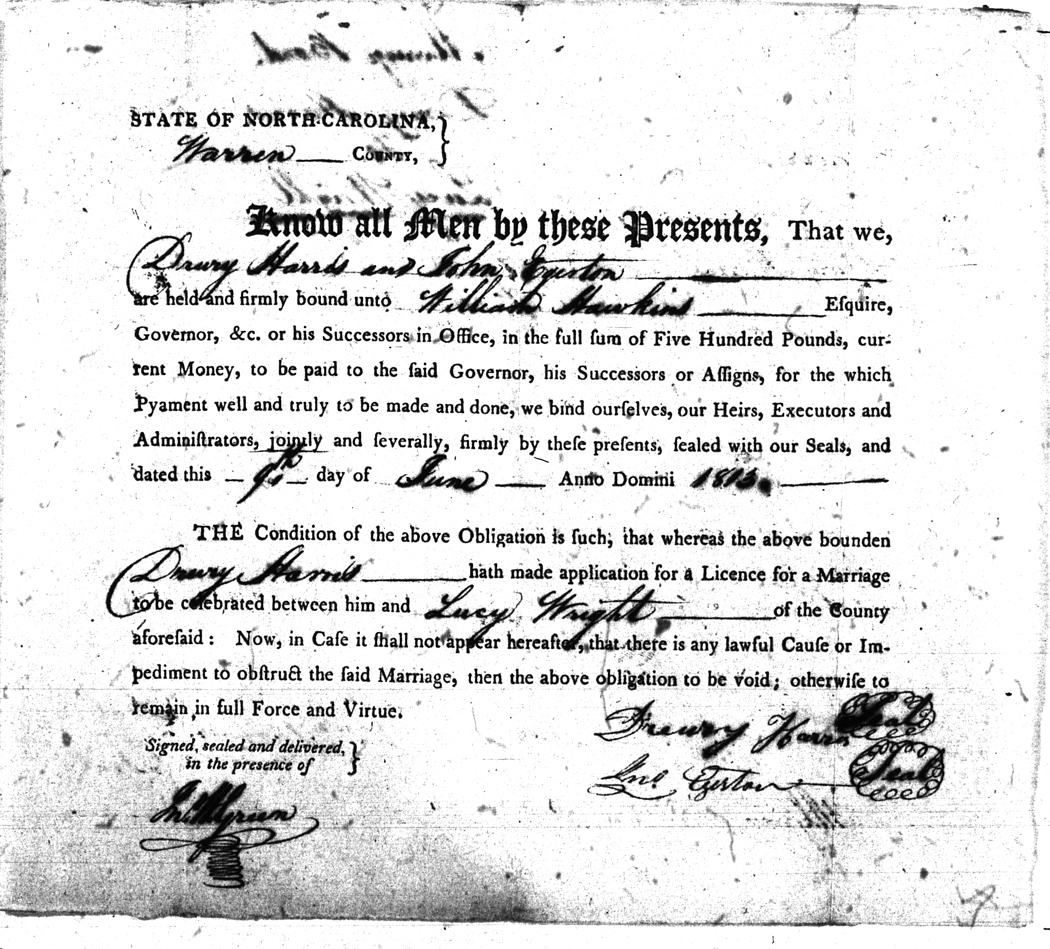 STATE OF NORTH-CAROLINA,
Warren County,
Know all Men by these Presents, That we,
Drury Harris and John Egerton
are held and firmly bound unto William Hawkins Eſquire,
Governor, &c. or his Successors in Office, in the full ſum of Five Hundred Pounds, cur-
rent Money, to be paid to the ſaid Governor, his Successors or Aſſigns, for the which
Pyament well and truly to be made and done, we bind ourſelves, our Heirs, Executors and
Adminiſtrators, jointly and ſeverally, firmly by theſe preſents, ſealed with our Seals, and
dated this 9th day of June Anno Domini 1813.
THE Condition of the above Obligation is ſuch; that whereas the above bounden
Drury Harris hath made application for a Licence for a Marriage
to be celebrated between him and Lucy Wright of the County
aforeſaid : Now, in Caſe it ſhall not appear hereafter, that there is any lawful Cauſe or Im-
pediment to obſtruct the ſaid Marriage, then the above obligation to be void; otherwiſe to
remain in full Force and Virtue.
Drewry Harris Seal
Signed, sealed and delivered,
in the presence of
Jno Egerton Seal
Green